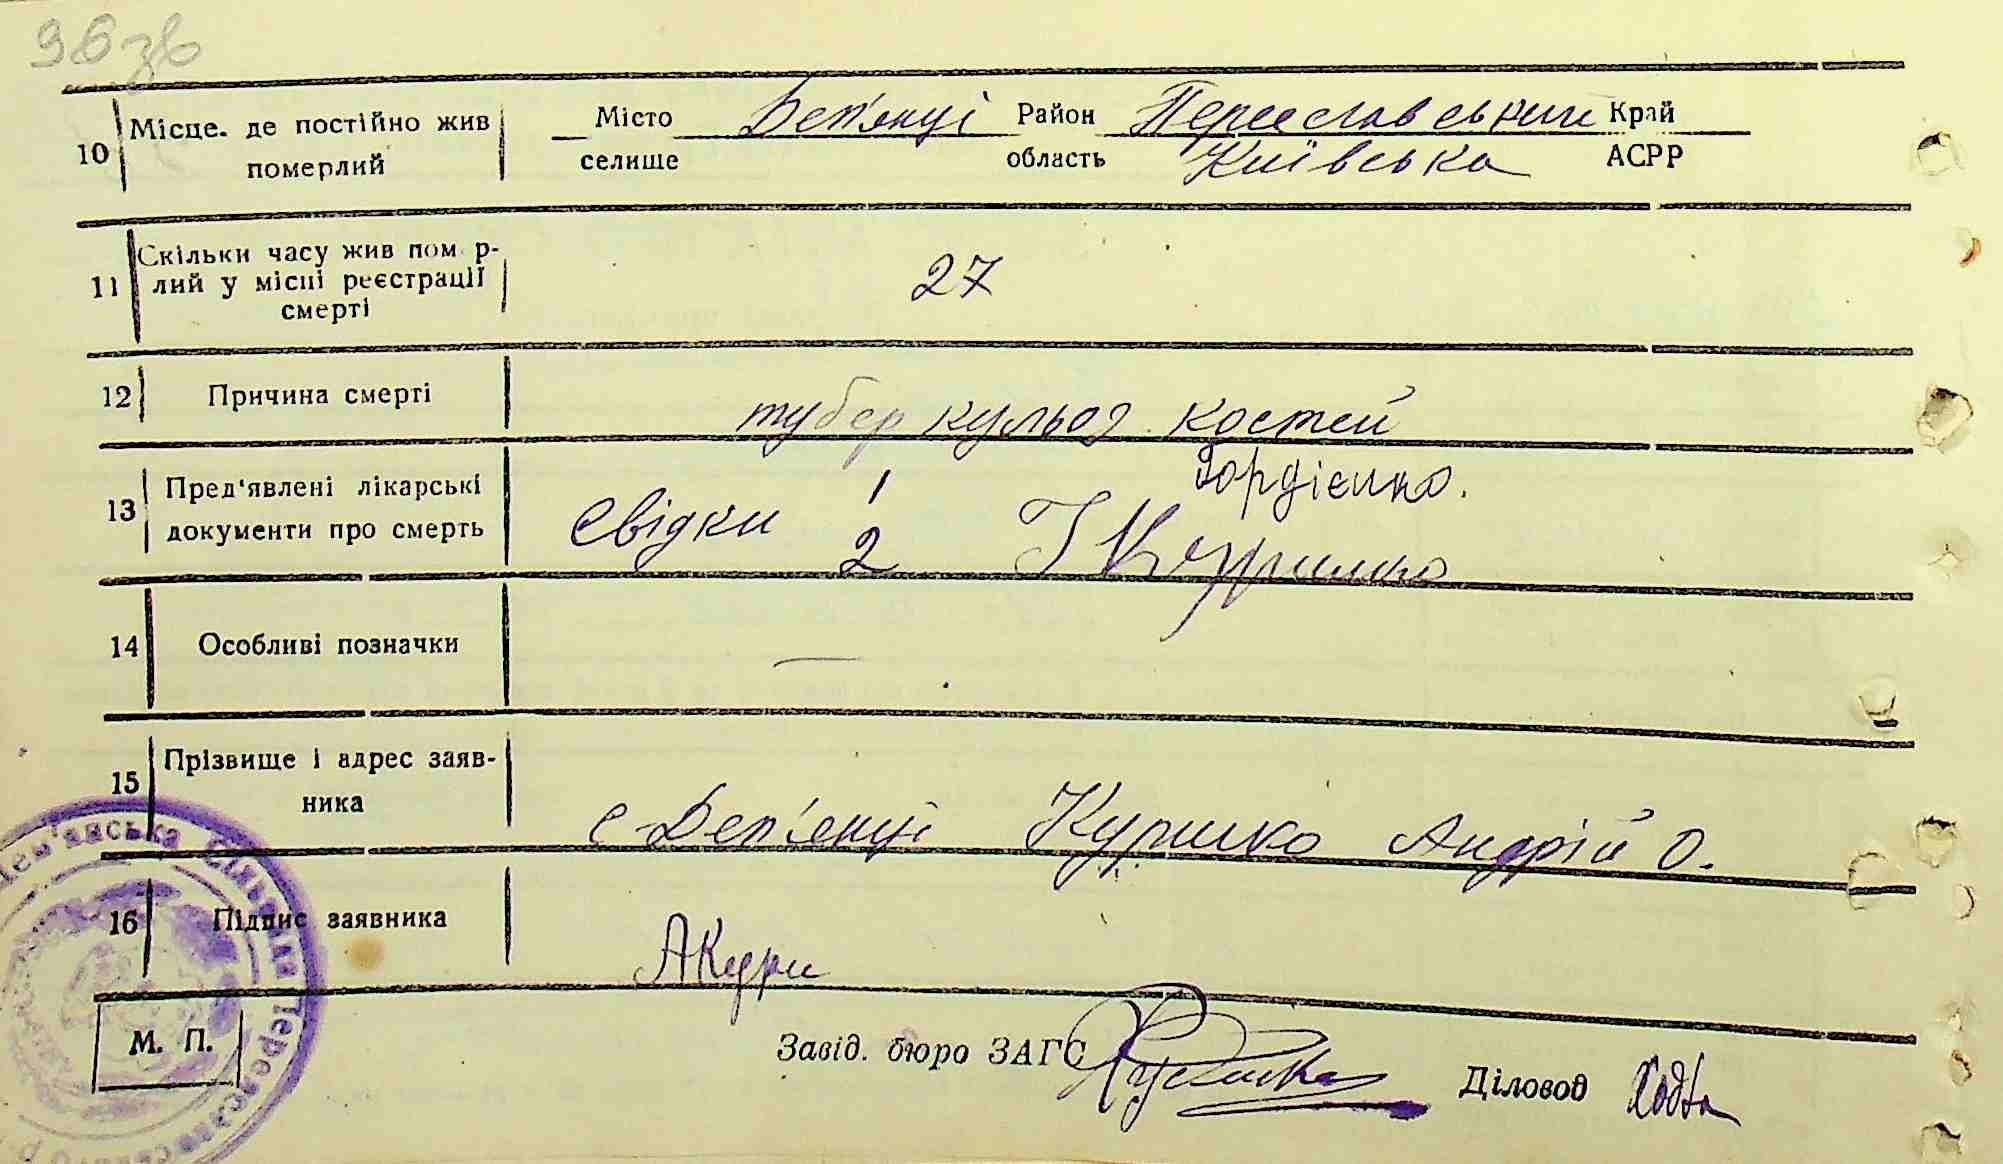 96 зв
10 Місце. де постійно жив померлий
Місто Деп'янці Район Переславський Край
селище область Київська АСРР
11 Скільки часу жив пом р-
лий у місці реєстрації
смерті
27
12 Причина смерті
туберкульоз костей
13 Пред'явлені лікарські
документи про смерть
Свідки 1 Гордієнко.
2
14 Особливі позначки
—
15 Прізвище і адрес заяв-
ника
с Деп'янці Куришко Андрій О.
16 Підпис заявника
АКури
М. П.
Завід. бюро ЗАГС
Діловод
Сільська